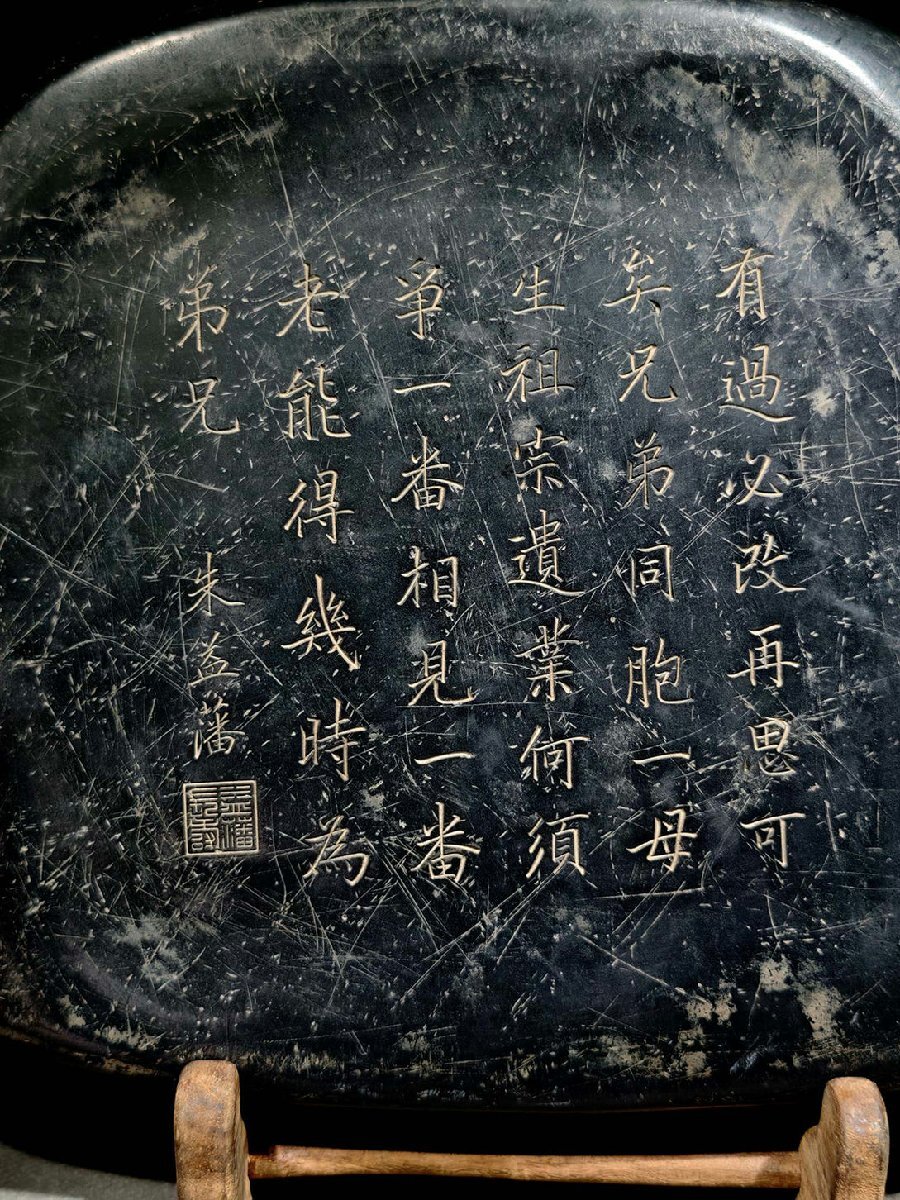 有過必改再思可
矣兄弟同胞一母
生祖宗遺業何須
爭一番相見一番
老能得幾時為
弟兄 朱益藩